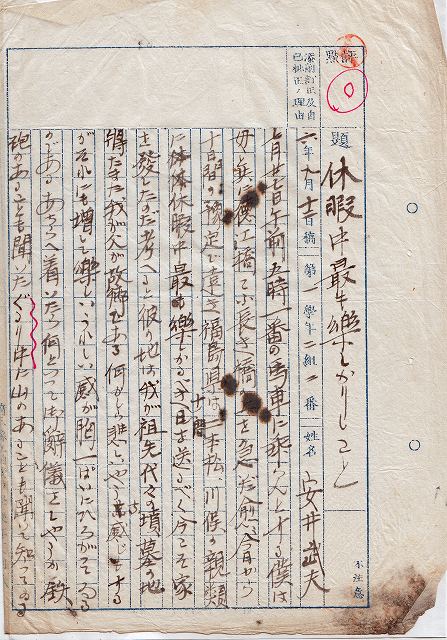 評點
○
添削訂正及自
己批正ノ理由
題
休暇中最も樂しかりしこと
六年九月十一日稿
第一學年二組二番
姓名
安井武夫
不注意
七月廿七日午前五時一番の馬車に乘らんとする僕は
母と共に
橋てふ長き橋
を急いだ愈今日から
十日間の豫定で遠き福島縣は二本松、川俣の親類
に休暇中最も樂しかるべき十日間を送るべく今こそ家
を發したただ考へると彼の地は我が祖先代々の墳墓の地
將たまた我が父が故郷である何かしら悲しいやうな感じもする
がそれにも增して樂しいうれしい感が胸一ぱいにひろがってゐる
あちらへ着いたら何と云って御辭儀をしやうか
砲のあることも聞いたぐるり中に山のあることも
知ってゐる